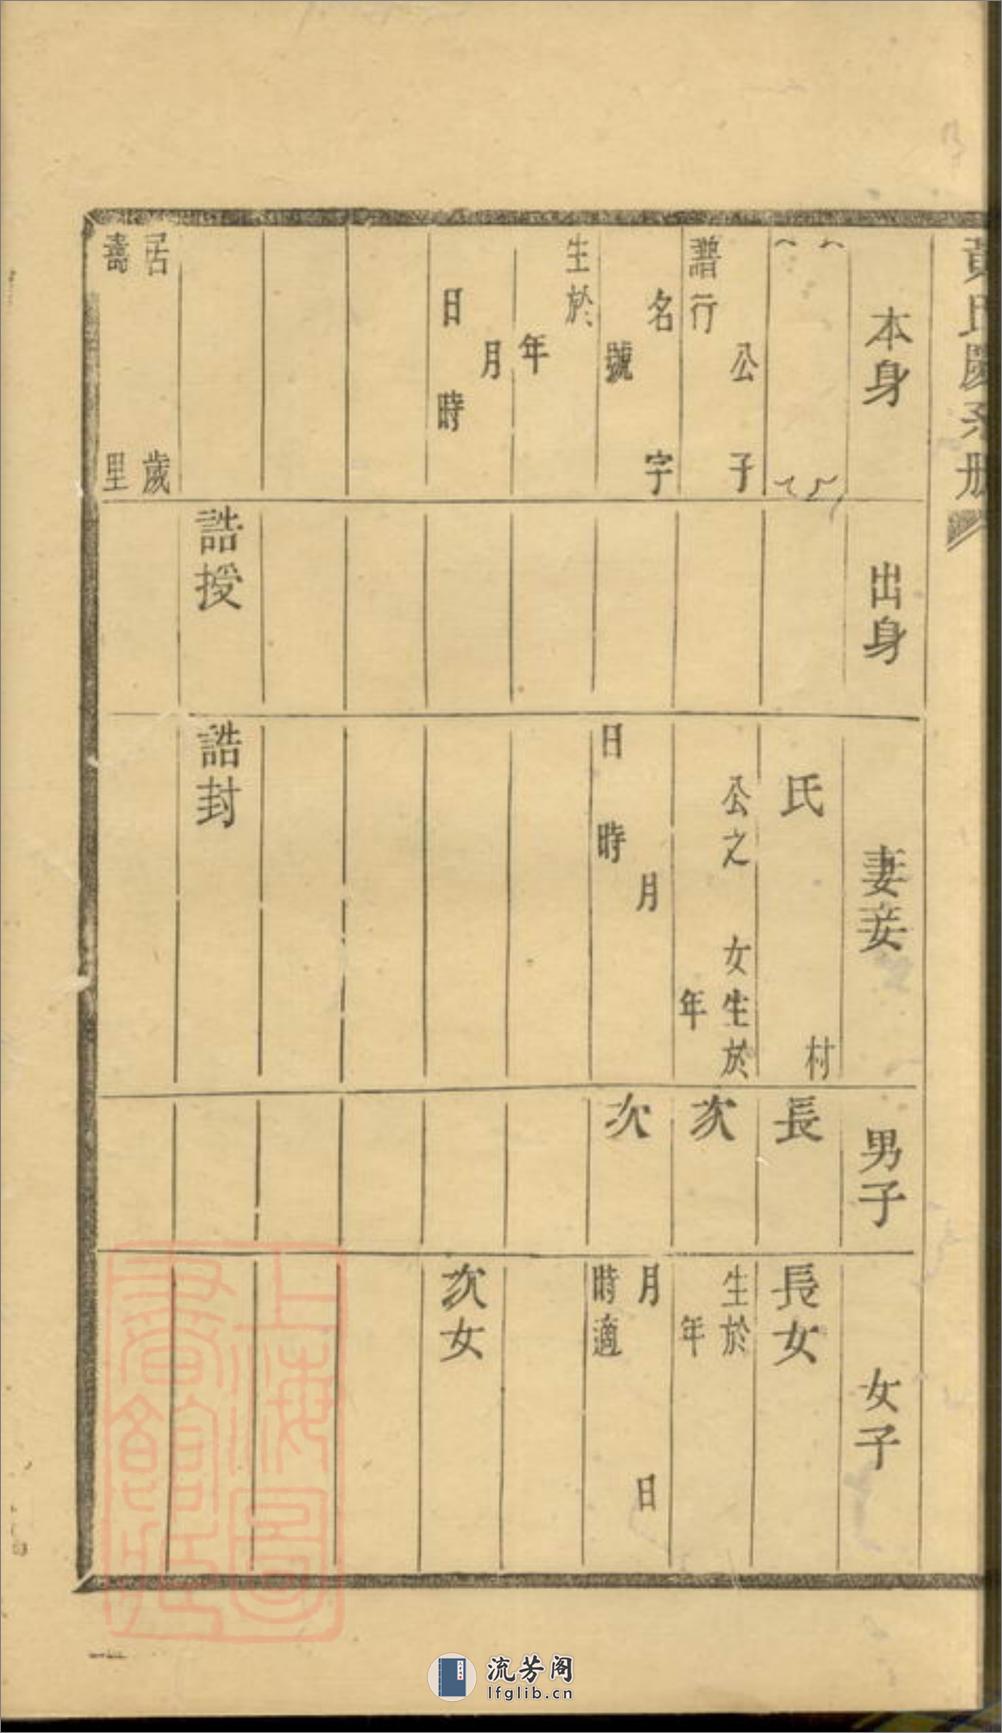 黃氏慶系册
本身
公子
譜行
名字
號
生於
年
月
日時
居歲
壽里
出身
誥授
妻妾
氏村
公之女生於
年
月
日時
誥封
男子
長
次
次
女子
長女
生於
年
月日
時適
次女
上海圖
書館藏
流芳阁
lfglib.cn